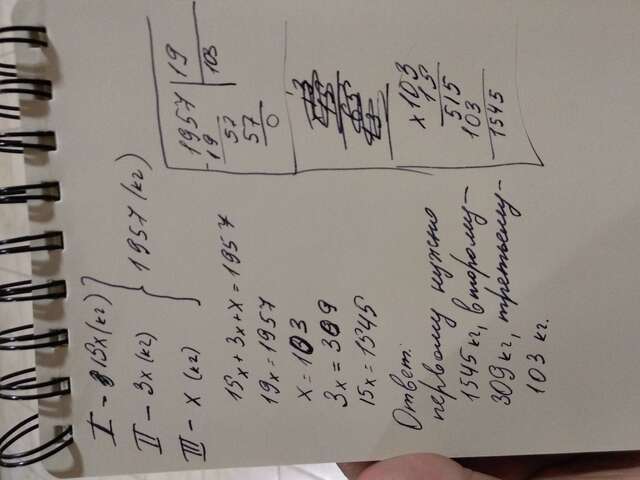 I - 15x (кг)
II - 3x (кг)
III - x (кг)
1957 (кг)
15x + 3x + x = 1957
19x = 1957
x = 103
3x = 309
15x = 1545
Ответ:
первому нужно
1545 кг, второму -
309 кг, третьему -
103 кг.
1957 | 19
- 19 103
57
57
0
x 103
15
515
103
1545